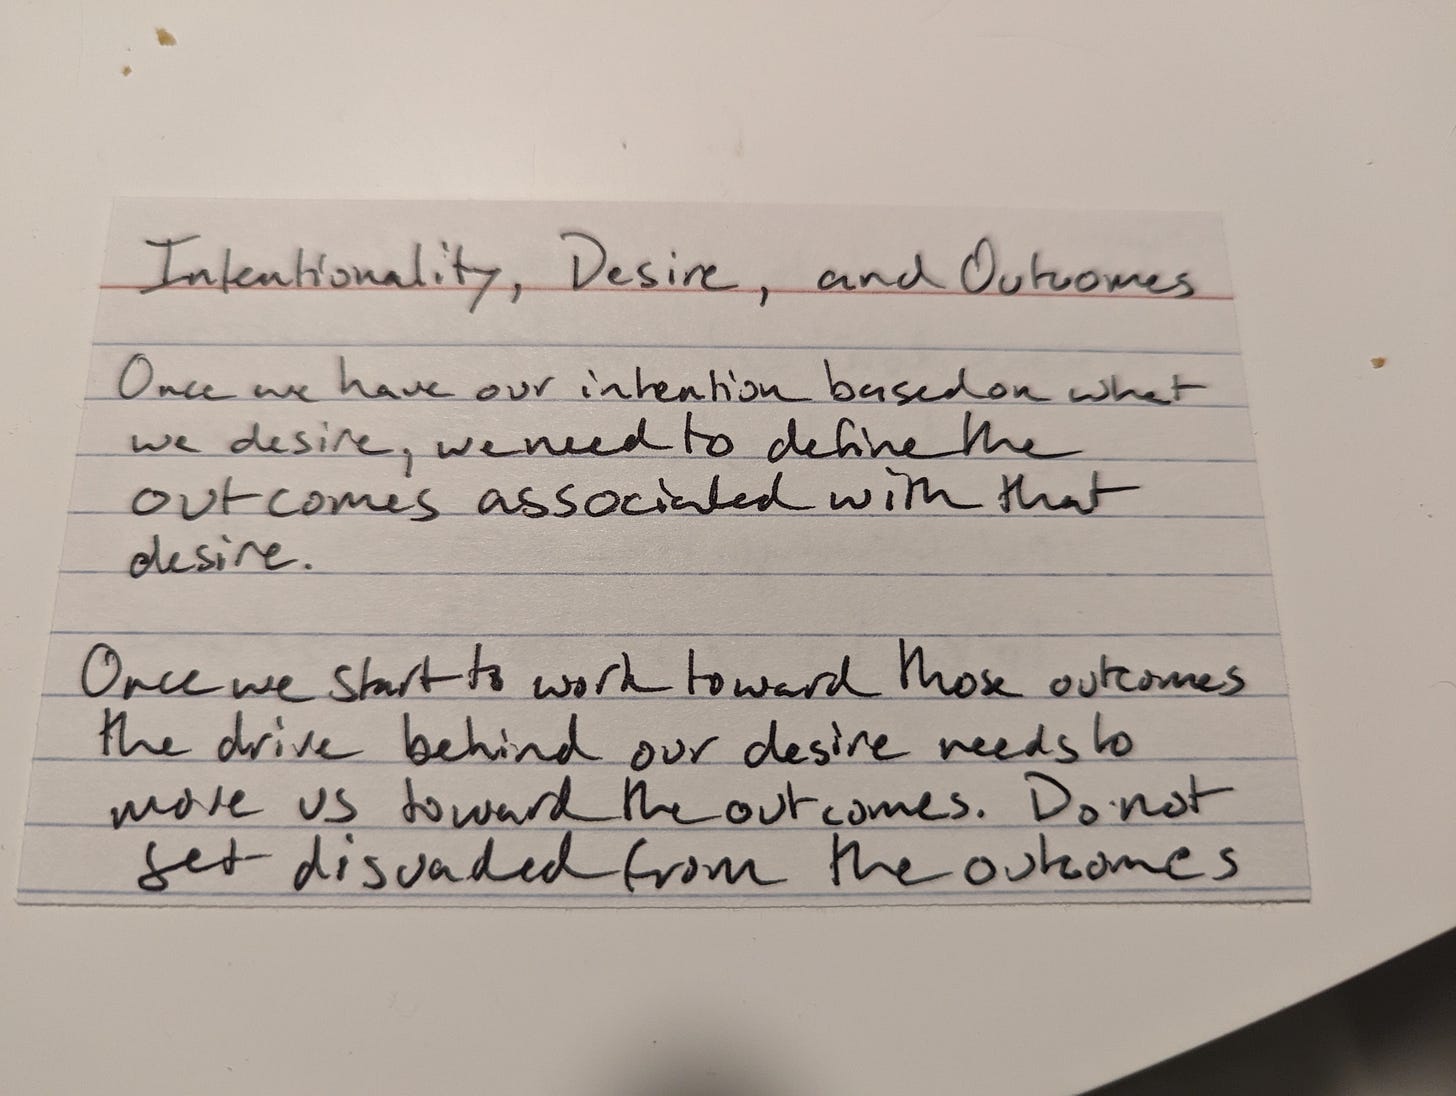 Intentionality, Desire, and Outcomes
Once we have our intention based on what
we desire, we need to define the
outcomes associated with that
desire.
Once we start to work toward those outcomes
the drive behind our desire needs to
move us toward the outcomes. Do not
get disuaded from the outcomes